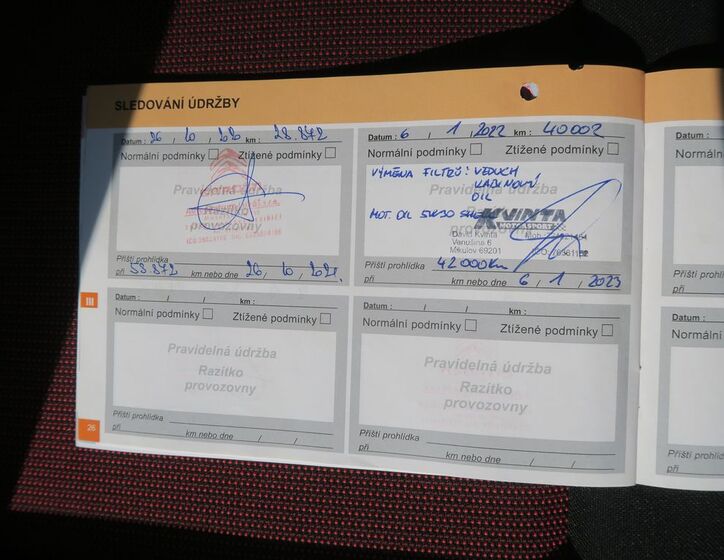 SLEDOVÁNÍ ÚDRŽBY
Datum : 26 / 10 / 20 km : 28.872
Normální podmínky Ztížené podmínky
Pravidelná údržba
Razítko
provozovny
Příští prohlídka
při 58 872 km nebo dne 26, 10,
Datum : 6 / 1 / 2022 km : 40002
Normální podmínky Ztížené podmínky
VÝMĚNA FILTRŮ: VZDUCH
KABINOVÝ
OIL
MOT. OIL 5W30 SHELL
KVINTA
MOTORSPORT
David Kvinta
Venušina 6
Mikulov 69201
Příští prohlídka
při 42 000km km nebo dne 6 / 1 / 2023
III
Datum : / / km :
Normální podmínky Ztížené podmínky
Pravidelná údržba
Razítko
provozovny
Příští prohlídka
při km nebo dne / /
Datum : / / km :
Normální podmínky Ztížené podmínky
Pravidelná údržba
Razítko
provozovny
Příští prohlídka
při km nebo dne / /
26
Datum :
Normální
Příští prohlí
při
Datum :
Normální
Příští prohl
při